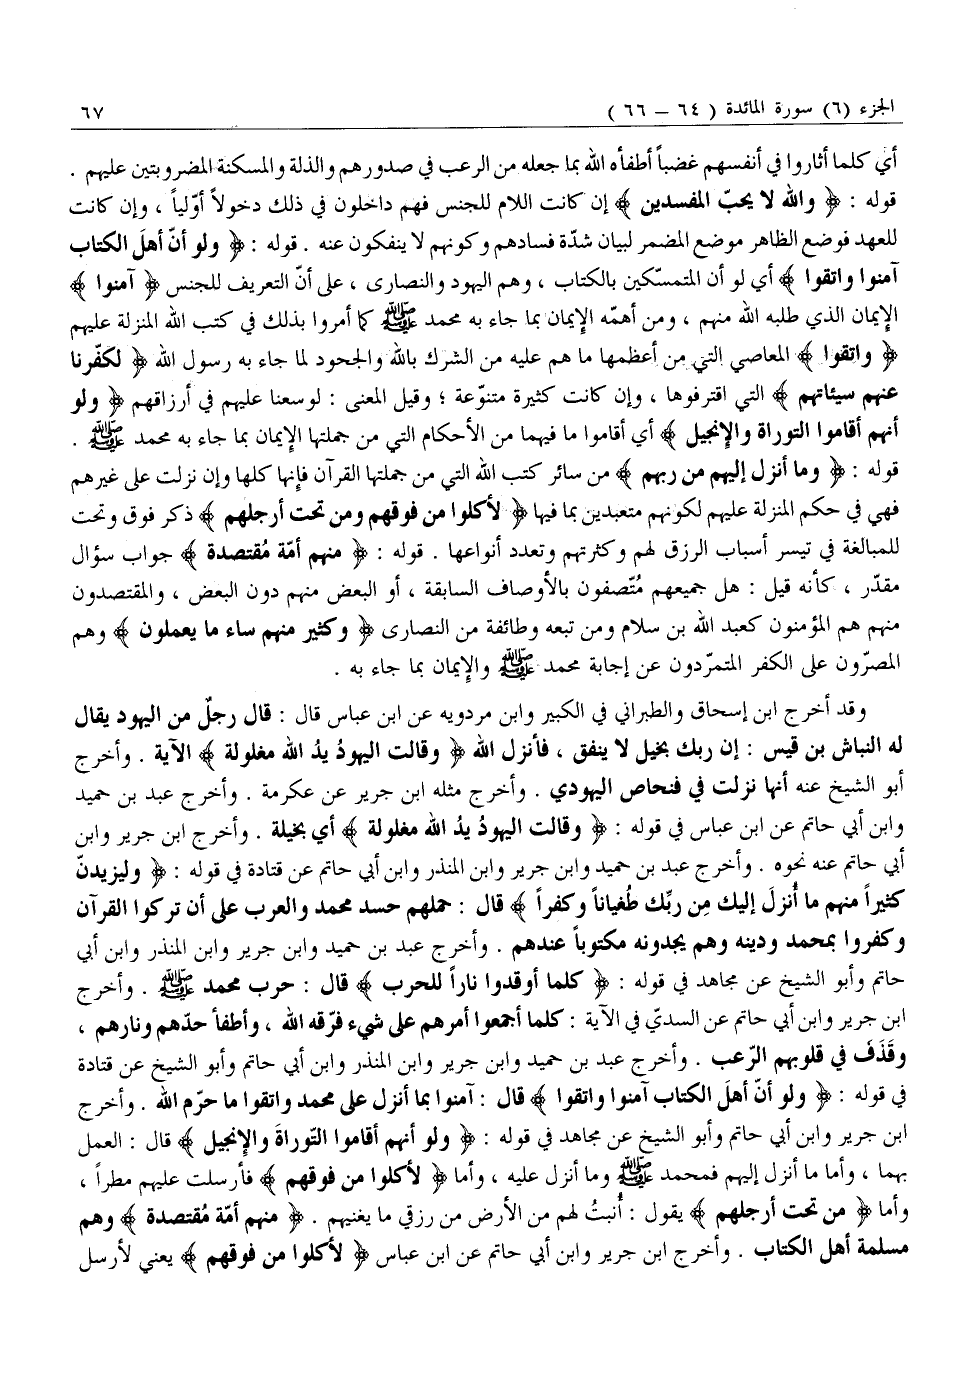 الجزء (٦) سورة المائدة ( ٦٤ – ٦٦ ) ٦٧
أي كلما أثاروا في أنفسهم غضباً أطفأه الله بما جعله من الرعب في صدورهم والذلة والمسكنة المضروبتين عليهم .
قوله : ﴿ والله لا يحبّ المفسدين ﴾ إن كانت اللام للجنس فهم داخلون في ذلك دخولاً أوّلياً ، وإن كانت
للعهد فوضع الظاهر موضع المضمر لبيان شدّة فسادهم وكونهم لا ينفكون عنه . قوله : ﴿ ولو أنّ أهل الكتاب
آمنوا واتقوا ﴾ أي لو أن المتمسّكين بالكتاب ، وهم اليهود والنصارى ، على أنّ التعريف للجنس ﴿ آمنوا ﴾
الإيمان الذي طلبه الله منهم ، ومن أهمّه الإيمان بما جاء به محمد ﷺ كما أمروا بذلك في كتب الله المنزلة عليهم
﴿ واتقوا ﴾ المعاصي التي من أعظمها ما هم عليه من الشرك بالله والجحود لما جاء به رسول الله ﴿ لكفّرنا
عنهم سيئاتهم ﴾ التي اقترفوها ، وإن كانت كثيرة متنوّعة ؛ وقيل المعنى : لوسعنا عليهم في أرزاقهم ﴿ ولو
أنهم أقاموا التوراة والإنجيل ﴾ أي أقاموا ما فيهما من الأحكام التي من جملتها الإيمان بما جاء به محمد ﷺ .
قوله : ﴿ وما أنزل إليهم من ربهم ﴾ من سائر كتب الله التي من جملتها القرآن فإنها كلها وإن نزلت على غيرهم
فهي في حكم المنزلة عليهم لكونهم متعبدين بما فيها ﴿ لأكلوا من فوقهم ومن تحت أرجلهم ﴾ ذكر فوق وتحت
للمبالغة في تيسر أسباب الرزق لهم وكثرتهم وتعدد أنواعها . قوله : ﴿ منهم أمّة مُقتصدة ﴾ جواب سؤال
مقدّر ، كأنه قيل : هل جميعهم مُتّصفون بالأوصاف السابقة ، أو البعض منهم دون البعض ، والمقتصدون
منهم هم المؤمنون كعبد الله بن سلام ومن تبعه وطائفة من النصارى ﴿ وكثير منهم ساء ما يعملون ﴾ وهم
المصرّون على الكفر المتمرّدون عن إجابة محمد ﷺ والإيمان بما جاء به .
وقد أخرج ابن إسحاق والطبراني في الكبير وابن مردويه عن ابن عباس قال : قال رجلٌ من اليهود يقال
له النباش بن قيس : إن ربك بخيل لا ينفق ، فأنزل الله ﴿ وقالت اليهودُ يدُ الله مغلولة ﴾ الآية . وأخرج
أبو الشيخ عنه أنها نزلت في فنحاص اليهودي . وأخرج مثله ابن جرير عن عكرمة . وأخرج عبد بن حميد
وابن أبي حاتم عن ابن عباس في قوله : ﴿ وقالت اليهودُ يدُ الله مغلولة ﴾ أي بخيلة . وأخرج ابن جرير وابن
أبي حاتم عنه نحوه . وأخرج عبد بن حميد وابن جرير وابن المنذر وابن أبي حاتم عن قتادة في قوله : ﴿ وليزيدنّ
كثيراً منهم ما أُنزلَ إليك مِن ربِّك طُغياناً وكفراً ﴾ قال : حملهم حسد محمد والعرب على أن تركوا القرآن
وكفروا بمحمد ودينه وهم يجدونه مكتوباً عندهم . وأخرج عبد بن حميد وابن جرير وابن المنذر وابن أبي
حاتم وأبو الشيخ عن مجاهد في قوله : ﴿ كلما أوقدوا ناراً للحرب ﴾ قال : حرب محمد ﷺ . وأخرج
ابن جرير وابن أبي حاتم عن السديّ في الآية : كلما أجمعوا أمرهم على شيء فرّقه الله ، وأطفأ حدّهم ونارهم ،
وقَذَفَ في قلوبهم الرّعب . وأخرج عبد بن حميد وابن جرير وابن المنذر وابن أبي حاتم وأبو الشيخ عن قتادة
في قوله : ﴿ ولو أنّ أهلَ الكتاب آمنوا واتقوا ﴾ قال : آمنوا بما أنزل على محمد واتقوا ما حرّم الله . وأخرج
ابن جرير وابن أبي حاتم وأبو الشيخ عن مجاهد في قوله : ﴿ ولو أنهم أقاموا التّوراةَ والإنجيل ﴾ قال : العمل
بهما ، وأما ما أنزل إليهم فمحمد ﷺ وما أنزل عليه ، وأما ﴿ لأكلوا من فوقهم ﴾ فأرسلت عليهم مطراً ،
وأما ﴿ من تحت أرجلهم ﴾ يقول : أُنبتُ لهم من الأرض من رزقي ما يغنيهم . ﴿ منهم أمّة مُقتصدة ﴾ وهم
مسلمة أهل الكتاب . وأخرج ابن جرير وابن أبي حاتم عن ابن عباس ﴿ لأكلوا من فوقهم ﴾ يعني لأرسل